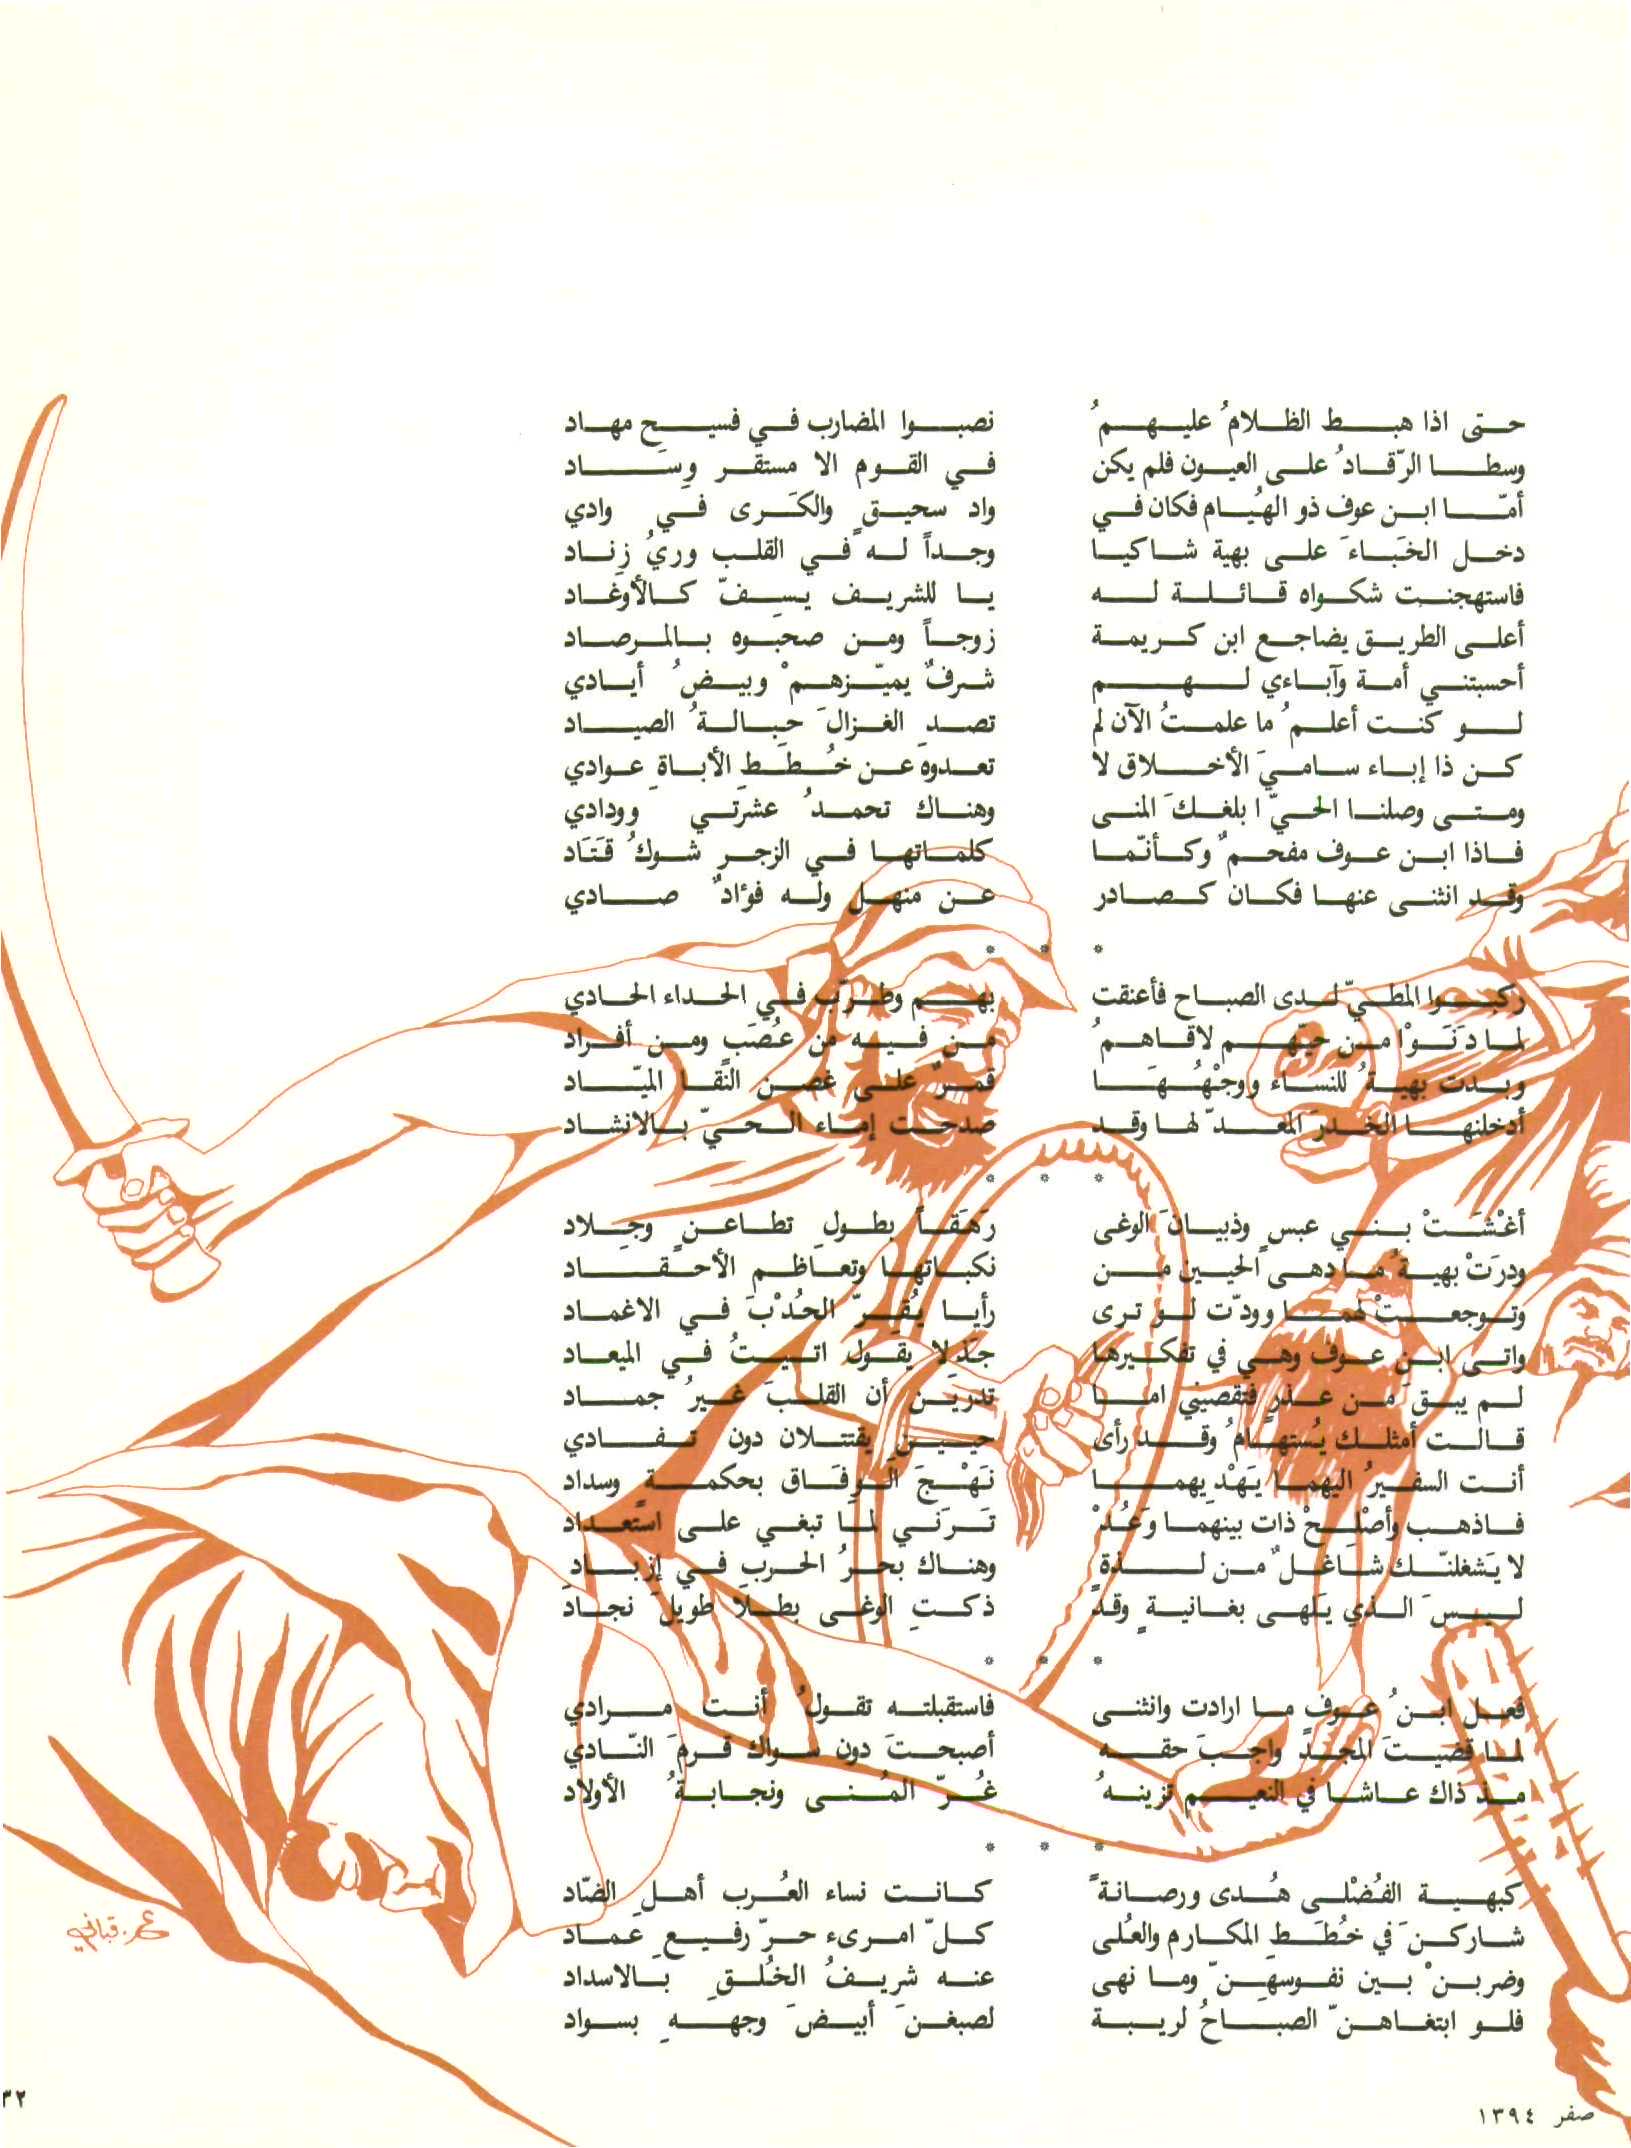 حتى اذا هبط الظلامُ عليهمُ نصبوا المضارب في فسيح مهاد
وسطا الرّقادُ على العيون فلم يكن في القوم الا مستقر وِساد
أمّا ابن عوف ذو الهُيام فكان في واد سحيق والكَرى في وادي
دخل الخَباءَ على بهية شاكيا وجداً له في القلب وريُ زِناد
فاستهجنت شكواه قائلة له يا للشريف يسِفّ كالأوغاد
أعلى الطريق يضاجع ابن كريمة زوجاً ومن صحبوه بالمرصاد
أحسبتني أمة وآباءي لهم شرفٌ يميّزهمْ وبيضُ أيادي
لو كنت أعلمُ ما علمتُ الآن لم تصدِ الغزالَ حِبالةُ الصياد
كن ذا إباء ساميَ الأخلاق لا تعدوه عن خُطَطِ الأباةِ عوادي
ومتى وصلنا الحيّ ابلغكَ المنى وهناك تحمدُ عشرتي وودادي
فاذا ابن عوف مفحمٌ وكأنّما كلماتها في الزجر شوكُ قَتَاد
وقد انثنى عنها فكان كصادر عن منهل وله فؤادٌ صادي
* * *
ركبوا المطيّ لدى الصباح فأعنقت بهم وطرّب في الحداء الحادي
لما دَنَوْا من حيّهم لاقاهمُ من فيه من عُصَب ومن أفراد
وبدت بهيةُ للنساء ووجْهُهَا قمرٌ على غصن النّقا الميّاد
أدخلنها الخدرَ المعدّ لها وقد صدحت إماء الحيّ بالانشاد
* * *
أغْشَتْ بني عبسٍ وذبيانَ الوغى رَهَقاً بطولِ تطاعنٍ وجِلاد
ودرَتْ بهيةُ ما دهى الحيين من نكباتها وتعاظم الأحقاد
وتوجعتْ لهما وودّت لو ترى رأيا يُقِرّ الحُدْبَ في الاغماد
واتى ابن عوف وهي في تفكيرها جَذِلا يقول اتيتُ في الميعاد
لم يبقَ من عذرٍ فتقصيني اما تدرين أن القلبَ غيرُ جماد
قالت أمثلك يُستهامُ وقد رأى حيين يقتتلان دون تفادي
أنت السفيرُ اليهما يَهْدِيهما نَهْجَ الوِفَاق بحكمةٍ وسداد
فاذهب وأصْلِحْ ذات بينهما وَعُدْ تَرَني لما تبغي على استعداد
لا يَشغلنّك شاغلٌ من لذة وهناك بحرُ الحرب في إزباد
ليسَ الذي يَلهى بغانيةٍ وقد ذكتِ الوغى بطلاً طويلَ نجاد
* * *
فعل ابنُ عوف ما ارادت وانثنى فاستقبلته تقولُ أنت مرادي
لما قضيتَ المجدَ واجبَ حقه أصبحتَ دون سواك قرمَ النّادي
مذ ذاك عاشا في النعيم تزينهُ غُرّ المُنى ونجابةُ الأولاد
* * *
كبهية الفُضْلى هُدى ورصانةً كانت نساء العُرب أهلِ الضّاد
شاركنَ في خُطَطِ المكارم والعُلى كلّ امرىء حرّ رفيع عماد
وضربنْ بين نفوسهِنّ وما نهى عنه شريفُ الخُلقِ بالاسداد
فلو ابتغاهنّ الصباحُ لريبة لصبغنَ أبيضَ وجههِ بسواد
عمر. قباني
صفر ١٣٩٤
٣٢